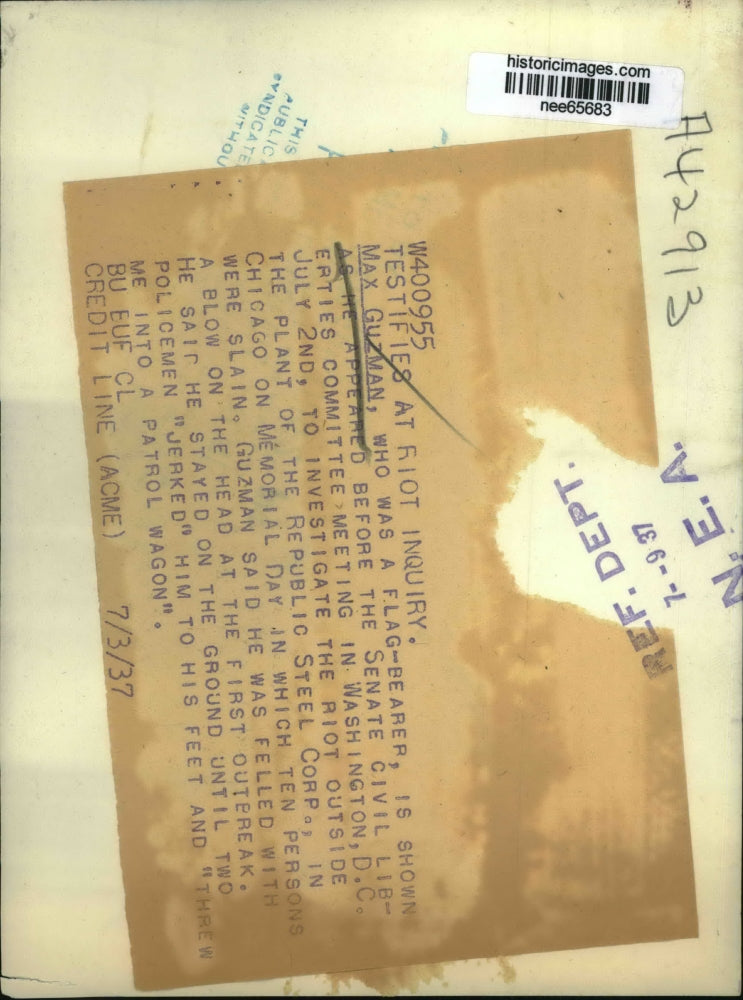 historicimages.com
nee65683
A42913
THIS
PUBLIC
SYNDICATE
WITHOU
REF. DEPT.
7-9 37
N. E. A.
W400955
TESTIFIES AT RIOT INQUIRY.
MAX GUZMAN, WHO WAS A FLAG-BEARER, IS SHOWN
AS HE APPEARED BEFORE THE SENATE CIVIL LIB-
ERTIES COMMITTEE MEETING IN WASHINGTON, D.C.
JULY 2ND, TO INVESTIGATE THE RIOT OUTSIDE
THE PLANT OF THE REPUBLIC STEEL CORP., IN
CHICAGO ON MEMORIAL DAY IN WHICH TEN PERSONS
WERE SLAIN. GUZMAN SAID HE WAS FELLED WITH
A BLOW ON THE HEAD AT THE FIRST OUTBREAK.
HE SAID HE STAYED ON THE GROUND UNTIL TWO
POLICEMEN "JERKED" HIM TO HIS FEET AND "THREW
ME INTO A PATROL WAGON".
BU EUF CL
CREDIT LINE (ACME) 7/3/37